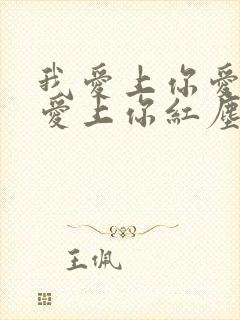 我愛上你愛
愛上你紅塵
王佩